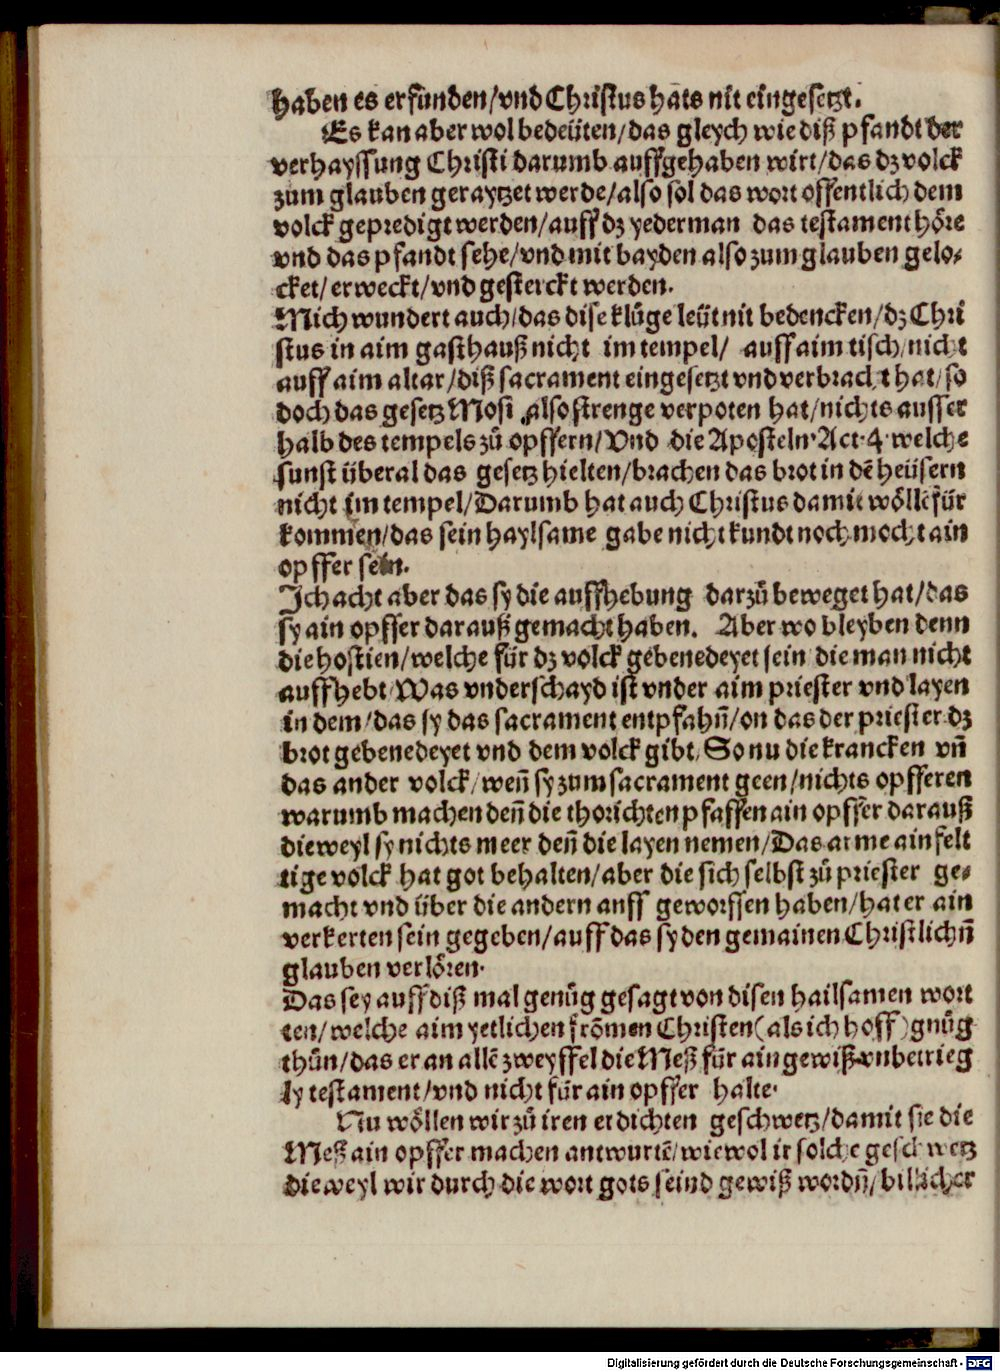 haben es erfunden/vnd Christus hats nit eingesetzt.
Es kan aber wol bedeüten/das gleych wie diß pfandt der
verhayssung Christi darumb auffgehaben wirt/das dz volck
zum glauben geraytzet werde/also sol das wort offentlich dem
volck gepredigt werden/auff dz yederman das testament höre
vnd das pfandt sehe/vnd mit bayden also zum glauben gelo⸗
cket/erweckt/vnd gesterckt werden.
Mich wundert auch/das dise klůge leüt nit bedencken/dz Chri
stus in aim gasthauß nicht im tempel/ auff aim tisch/nicht
auff aim altar/diß sacrament eingesetzt vnd verbracht hat/so
doch das gesetz Mosi also strenge verpoten hat/nichts ausser
halb des tempels zů opffern/Vnd die Aposteln·Act·4·welche
sunst überal das gesetz hielten/brachen das brot in dē heüsern
nicht im tempel/Darumb hat auch Christus damit wöllē für
kommen/das sein haylsame gabe nicht kundt noch mocht ain
opffer sein.
Ich acht aber das sy die auffhebung darzů beweget hat/das
sy ain opffer darauß gemacht haben. Aber wo bleyben denn
die hostien/welche für dz volck gebenedeyet sein die man nicht
auffhebt/Was vnderschayd ist vnder aim priester vnd layen
in dem/das sy das sacrament entpfahn̄/on das der priester dz
brot gebenedeyet vnd dem volck gibt/So nu die krancken vn̄
das ander volck/wen̄ sy zum sacrament geen/nichts opfferen
warumb machen den̄ die thorichten pfaffen ain opffer darauß
dieweyl sy nichts meer den̄ die layen nemen/Das arme ainfelt
tige volck hat got behalten/aber die sich selbst zů priester ge⸗
macht vnd über die andern anff geworffen haben/hat er ain
verkerten sein gegeben/auff das sy den gemainen Christlichn̄
glauben verlören·
Das sey auff diß mal genůg gesagt von disen hailsamen wort
ten/welche aim yetlichen frōmen Christen(als ich hoff)gnůg
thůn/das er an allē zweyffel die Meß für ain gewiß vnbetrieg
ly testament/vnd nicht für ain opffer halte·
Nu wöllen wir zů iren erdichten geschwetz/damit sie die
Meß ain opffer machen antwurtē/wiewol ir solche geschwetz
dieweyl wir durch die wort gots seind gewiß wordn̄/billicher
Digitalisierung gefördert durch die Deutsche Forschungsgemeinschaft - DFG